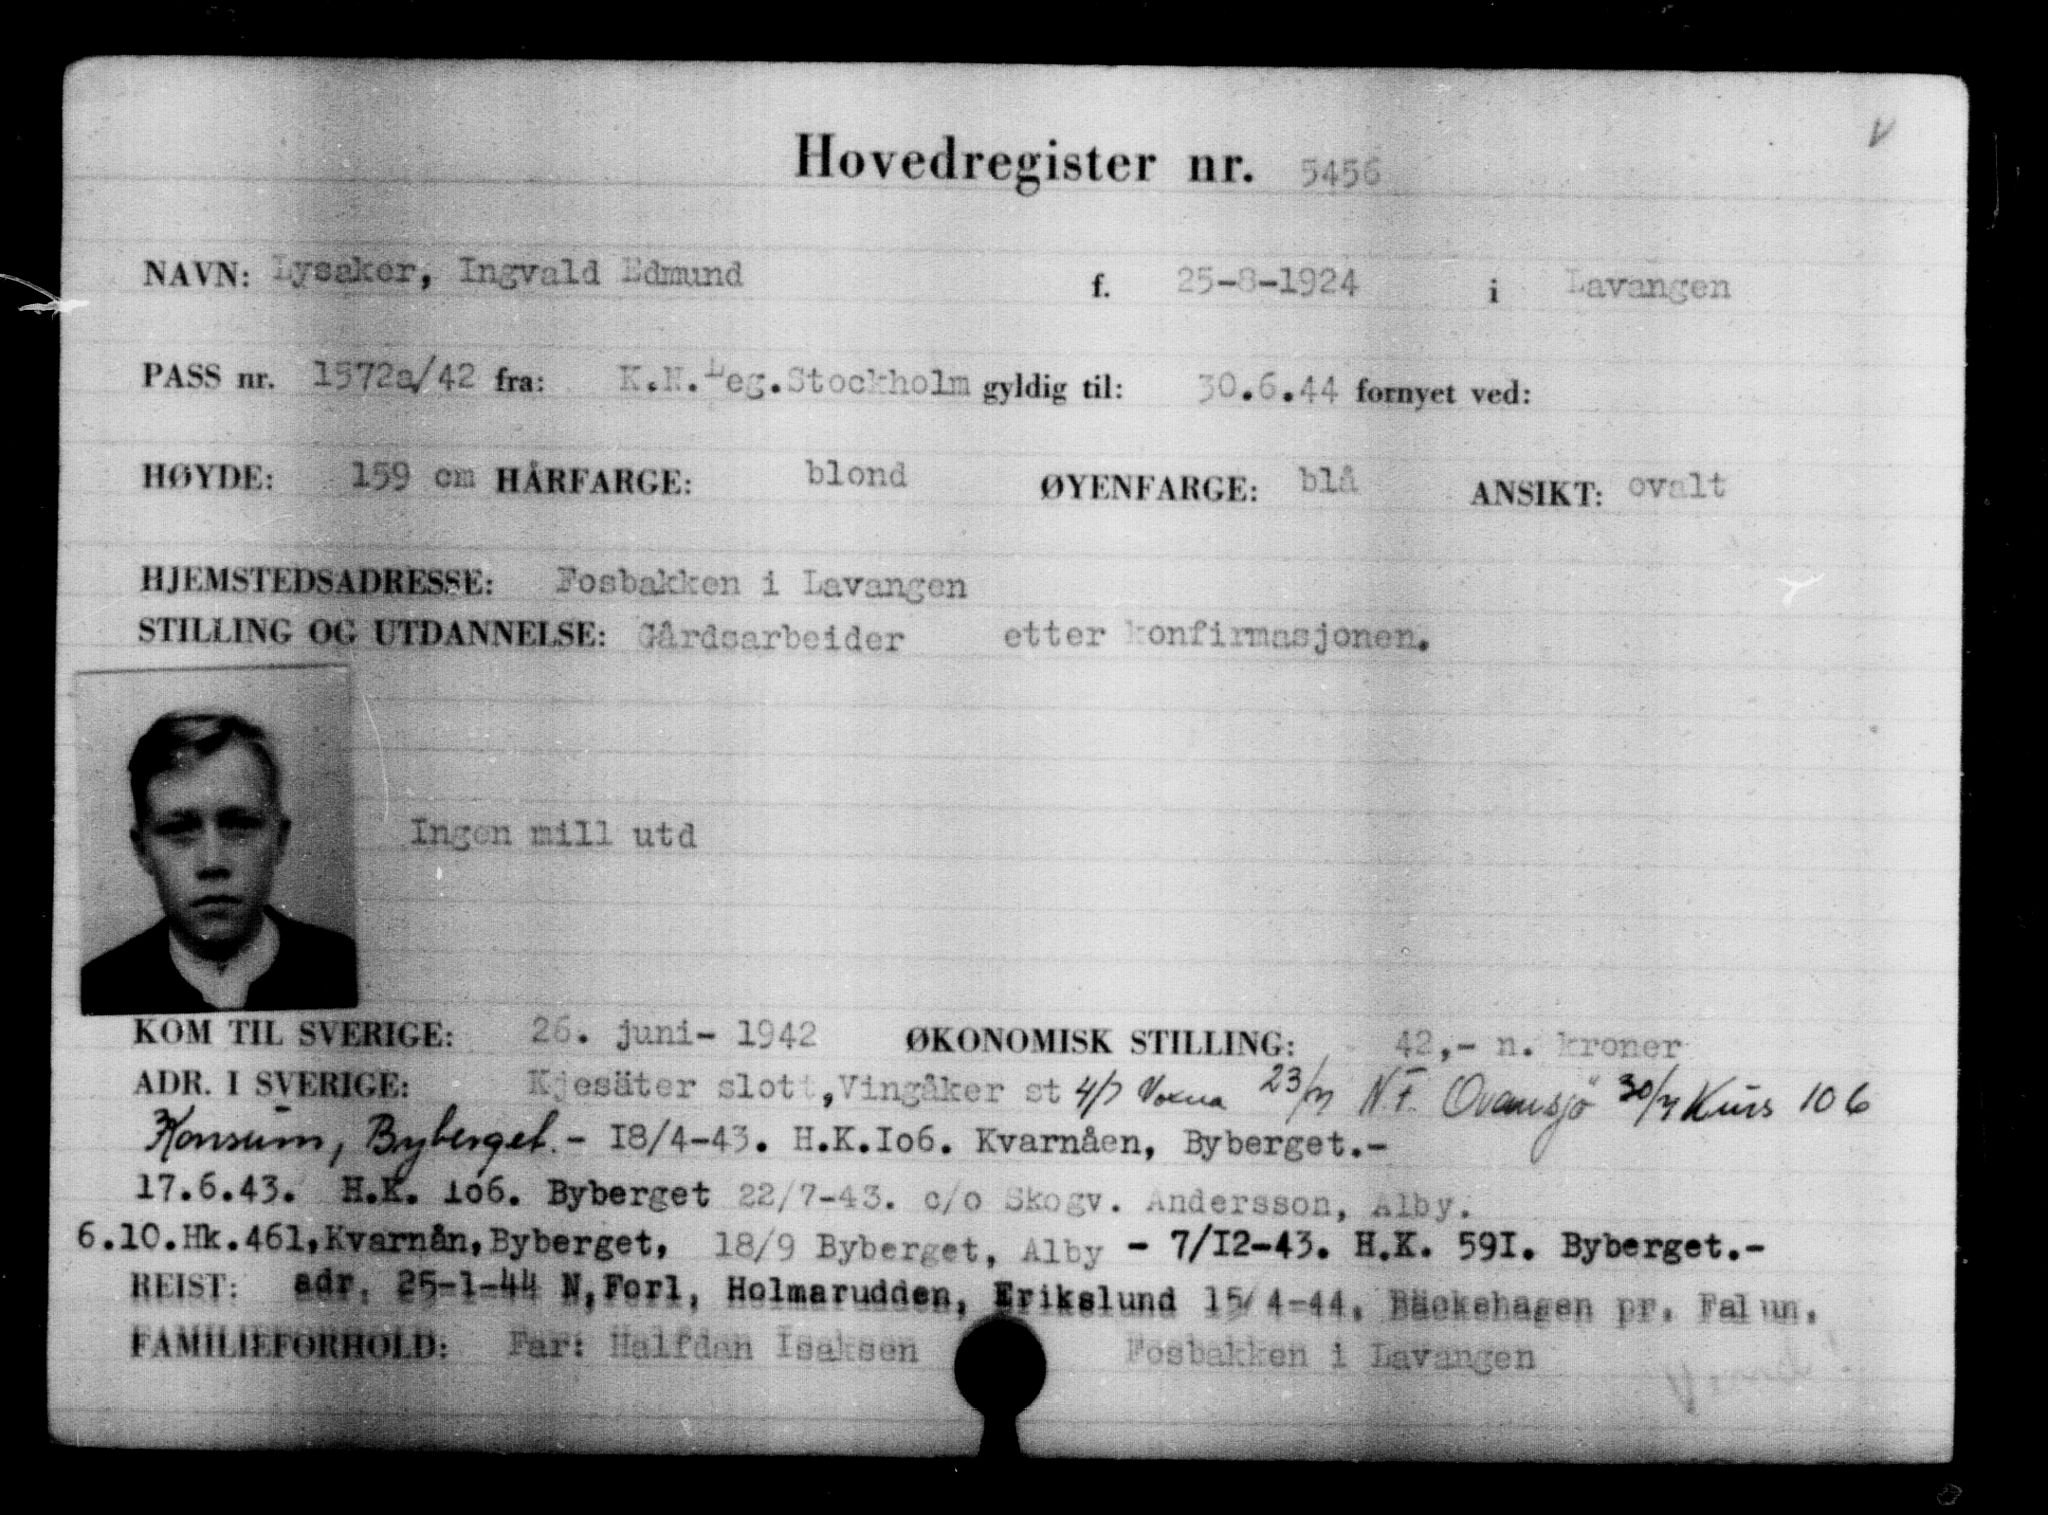 Hovedregister nr. 5456
NAVN: Lysaker, Ingvald Edmund f. 25-8-1924 i Lavangen
PASS nr. 1572a/42 fra: K.N.Leg.Stockholm gyldig til: 30.6.44 fornyet ved:
HØYDE: 159 cm HÅRFARGE: blond ØYENFARGE: blå ANSIKT: ovalt
HJEMSTEDSADRESSE: Fosbakken i Lavangen
STILLING OG UTDANNELSE: Gårdsarbeider etter konfirmasjonen.
Ingen mill utd
KOM TIL SVERIGE: 26. juni- 1942 ØKONOMISK STILLING: 42,- n. kroner
ADR. I SVERIGE: Kjesäter slott,Vingåker st 4/7 Voxna 23/7 N.F. Ovansjö 30/7 Kurs 106
Konsum, Byberget.- 18/4-43. H.K.106. Kvarnåen, Byberget.-
17.6.43. H.K. 106. Byberget 22/7-43. c/o Skogv. Andersson, Alby.
6.10.Hk.461,Kvarnån,Byberget, 18/9 Byberget, Alby - 7/12-43. H.K. 591. Byberget.-
REIST: adr. 25-1-44 N,Forl, Holmarudden, Erikslund 15/4-44. Bäckehagen pr. Falun.
FAMILIEFORHOLD: Far: Halfdan Isaksen Fosbakken i Lavangen